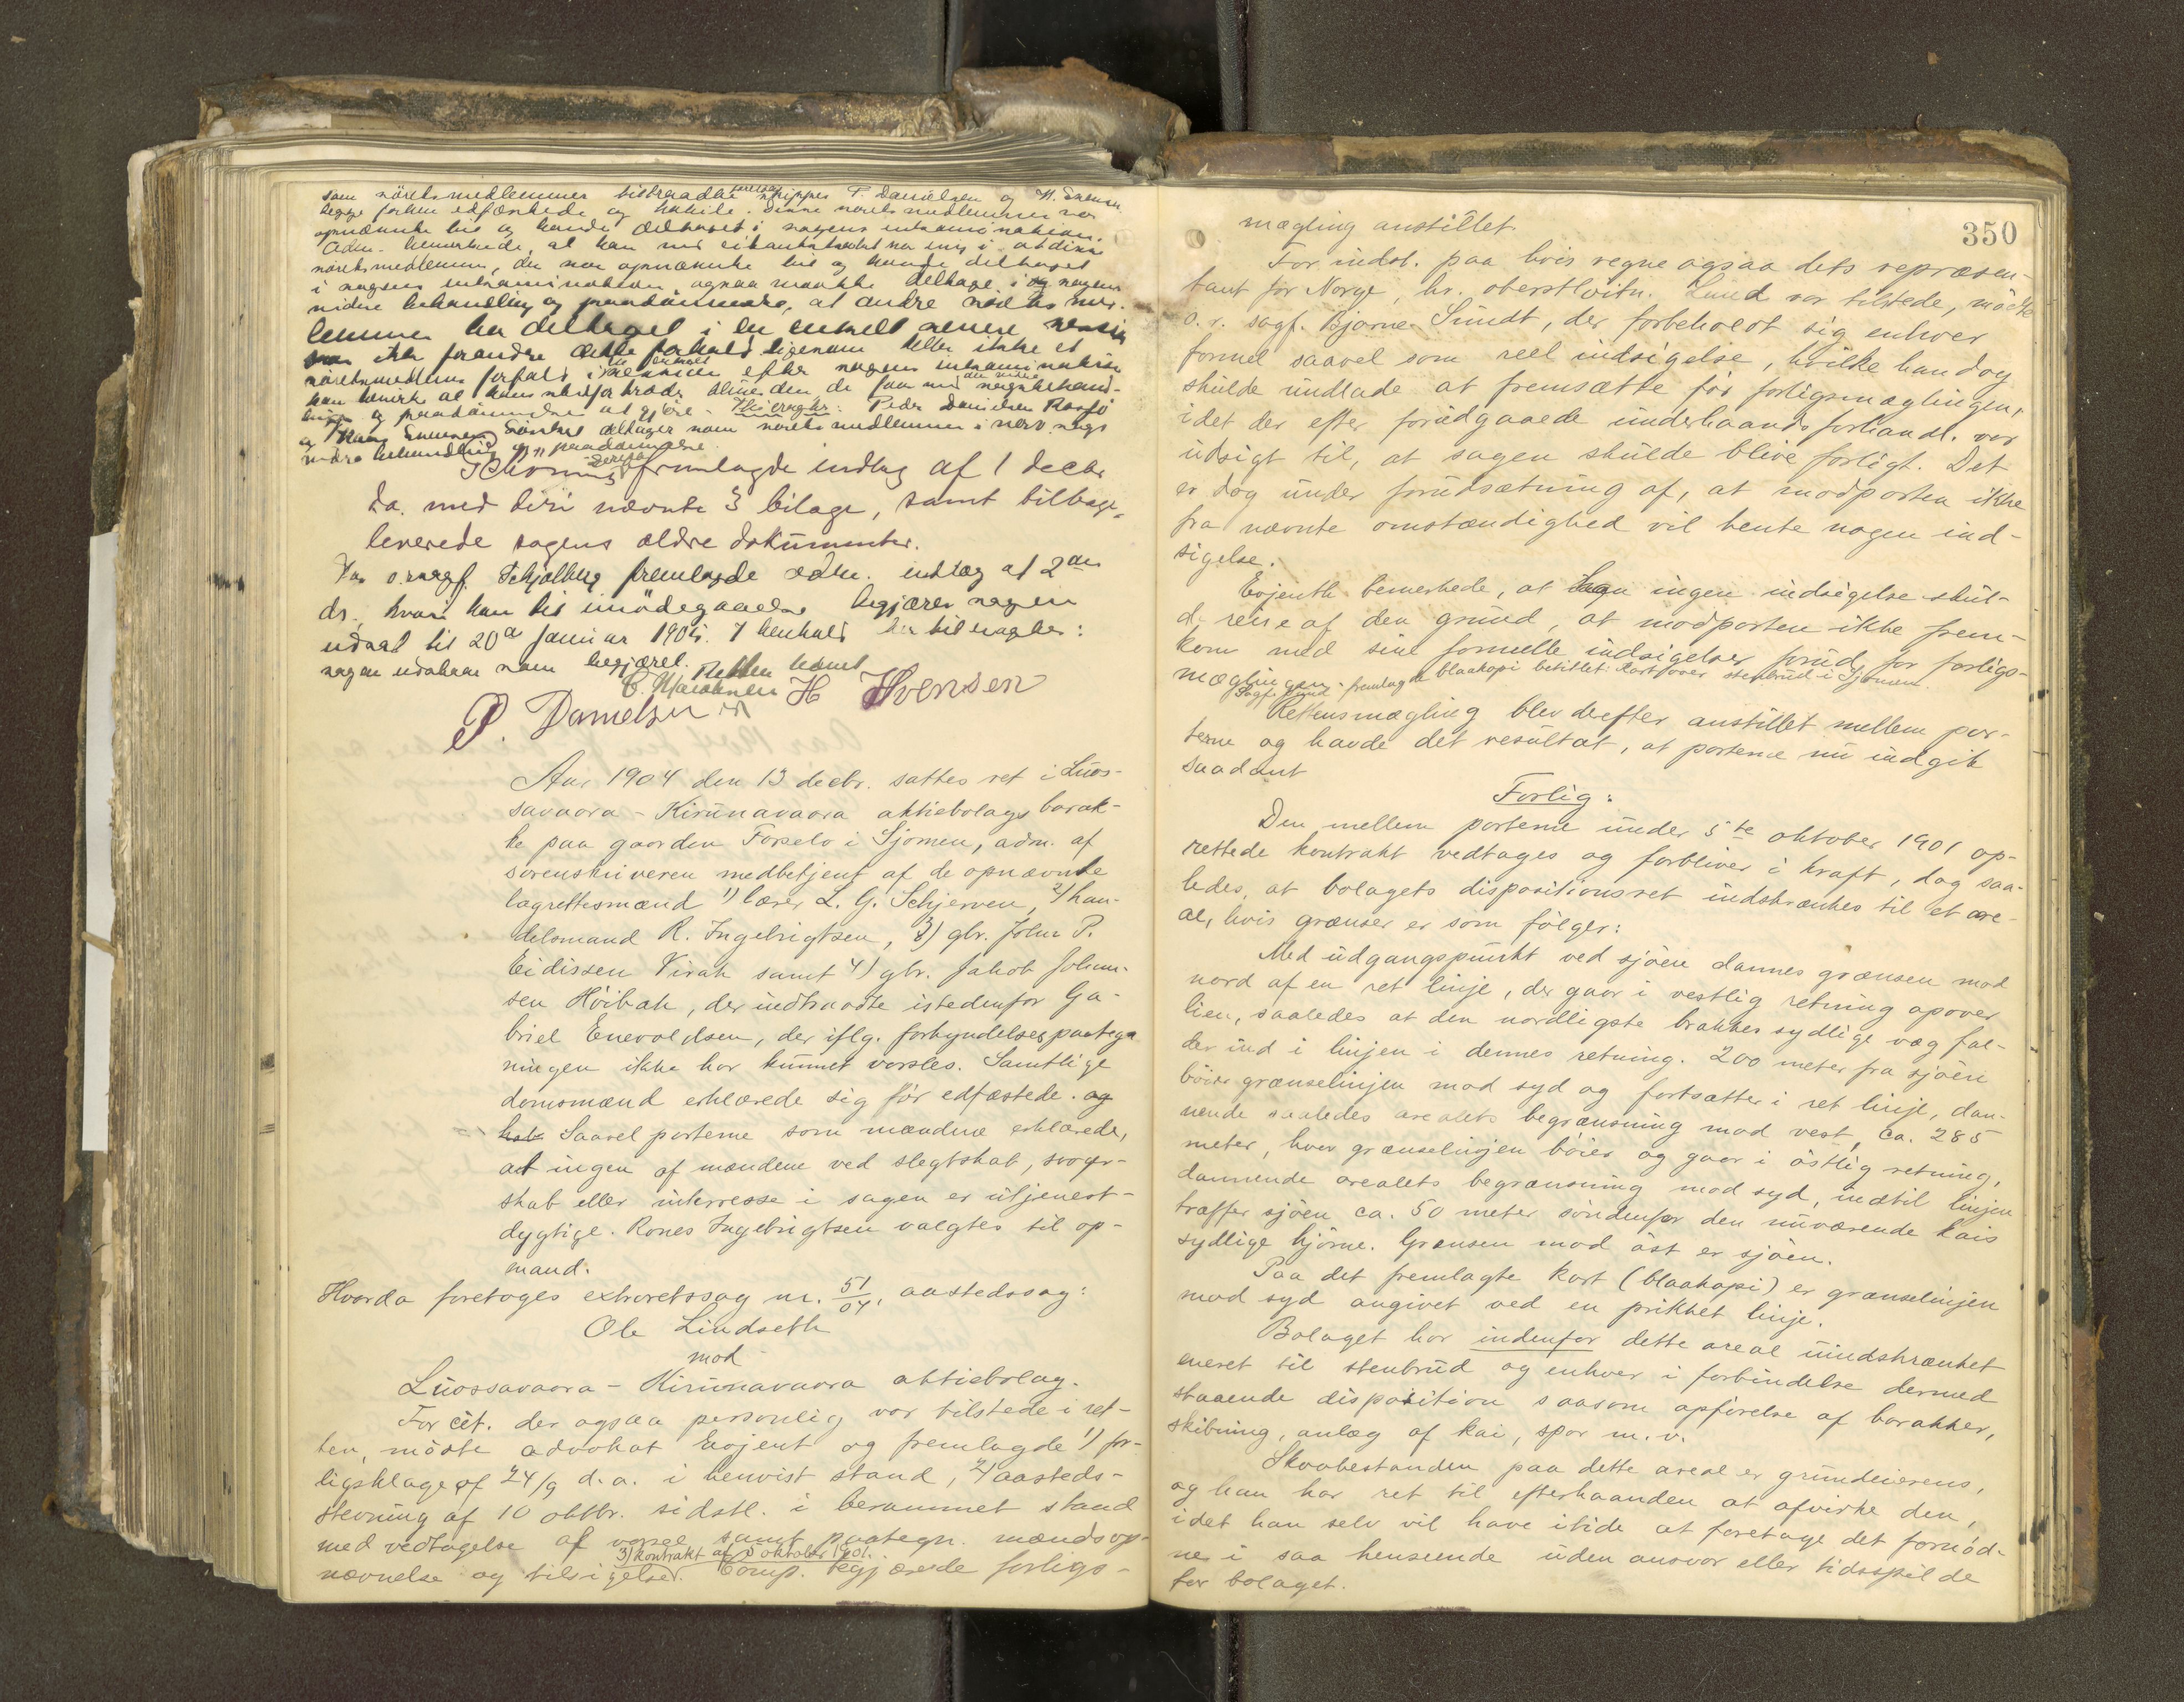 som söretsmedlemmer tiltraadte skipper P. Danielsen og H. Evensen
begge forhen edfæstede og habile. Disse söretsmedlemmer var
opnævnte til og havde deltaget i sagens examination.
Adm. bemærkede, at han med citanten var enig i at disse
söretsmedlemmer, der var opnævnte til og havde deltaget
i sagens examination ogsaa maatte deltage i sagens
videre behandling og paadömmelse, at andre
lemmer har deltaget i en enkelt senere session
kan ikke forandre dette forhold ligesom heller ikke et
söretsmedlems forfald i en enkelt session efter sagens examination
kan bevirke at hans stedfortræder
og paadömmelse at gjöre. Thi eragtes: Peder Danielsen
og Hans Evensen deltager som söretsmedlemmer i nærv. sags
videre behandling og paadömmelse.
fremlagde indlæg af 1 decbr
d.a. med deri nævnte 3 bilage, samt tilbage-
leverede sagens ældre dokumenter.
For o.r.sagf. Schjölberg fremlagde adm. indlæg af 2den
ds., hvori han til imödegaaelse begjærer sagen
udsat til 20de januar 1905. I henhold hertil eragtes:
sagen udsættes som begjæret. Retten hævet
P. Danielsen H Evensen
Aar 1904 den 13 decbr. sattes ret i Luos-
savaara-Kirunavaara aktiebolags barak-
ke paa gaarden Forselv i Sjomen, adm. af
sorenskriveren medbetjent af de opnævnte
lagrettesmænd 1) lærer L. G. Schjerven, 2) han-
delsmand R. Ingebrigtsen, 3) gbr. Johan P.
Eidissen Virak samt 4) gbr. Jakob Johan-
sen Höibak, der indtraadte istedenfor Ga-
briel Enevoldsen, der iflg. forkyndelsespaateg-
ningen ikke har kunnet varsles. Samtlige
domsmænd erklærede sig för edfæstede. og
hab Saavel parterne som mændene erklærede,
at ingen af mændene ved slegtskab, svoger-
skab eller interresse i sagen er utjenest-
dygtige. Rones Ingebrigtsen valgtes til op-
mand.
Hvorda foretoges extraretssag nr. 51/04, aastedssag:
Ole Lindseth
mod
Luossavaara-Kirunavaara aktiebolag.
For cit. der ogsaa personlig var tilstede i ret-
ten, mödte advokat Evjent og fremlagde 1) for-
ligsklage af 24/9 d.a. i henvist stand, 2) aasteds-
stevning af 10 oktbr. sidstl. i berammet stand
med vedtagelse af varsel samt paategn. mændsop-
3) kontrakt af 5 oktober 1901.
nævnelse og tilsigelse. Comp. begjærede forligs-
350
mægling anstillet
For indst. paa hvis vegne ogsaa dets repræsen-
tant for Norge, hr. oberstløitn. Lund var tilstede, mödte
o.r. sagf. Bjarne Sundt, der forbeholdt sig enhver
formel saavel som reel indsigelse, hvilke han dog
skulde undlade at fremsætte för forligsmæglingen,
idet der efter forudgaaede underhaandsforhandl. var
udsigt til, at sagen skulde blive forligt. Det
er dog under forudsætning af, at modparten ikke
fra nævnte omstændighed vil hente nogen ind-
sigelse.
Evjenth bemerkede, at han ingen indsigelse skul-
de reise af den grund, at modparten ikke frem-
kom med sine formelle indsigelser forud for forligs-
mæglingen.
Sagf. Sund fremlagde blaakopi betitlet: Kart over stenbrud i Sjomen.
Rettensmægling blev derefter anstillet mellem par-
terne og havde det resultat, at parterne nu indgik
saadant
Forlig:
Den mellem parterne under 5te oktober 1901 op-
rettede kontrakt vedtages og forbliver i kraft, dog saa-
ledes, at bolagets dispositionsret indskrænkes til et are-
al, hvis grænser er som fölger:
Med udgangspunkt ved sjöen dannes grænsen mod
nord af en ret linje, der gaar i vestlig retning opover
lien, saaledes at den nordligste brakkes sydlige væg fal-
der ind i linjen i dennes retning. 200 meter fra sjöen
böier grænselinjen mod syd og fortsætter i ret linje, dan-
nende saaledes arealets begrænsning mod vest, ca. 285
meter, hvor grænselinjen böier og gaar i östlig retning,
dannende arealets begrænsning mod syd, indtil linjen
træffer sjöen ca. 50 meter söndenfor den nuværende kais
sydlige hjörne. Grænsen mod öst er sjöen.
Paa det fremlagte kart (blaakopi) er grænselinjen
mod syd angivet ved en prikket linje.
Bolaget har indenfor dette areal uindskrænket
eneret til stenbrud og enhver i forbindelse dermed
staaende disposition saasom opförelse af barakker,
skibning, anlæg af kai, spor m.v.
Skovbestanden paa dette areal er grundeierens,
og han har ret til efterhaanden at afvirke den,
idet han selv vil have itide at foretage det fornöd-
ne i saa henseende uden ansvar eller tidsspilde
for bolaget.